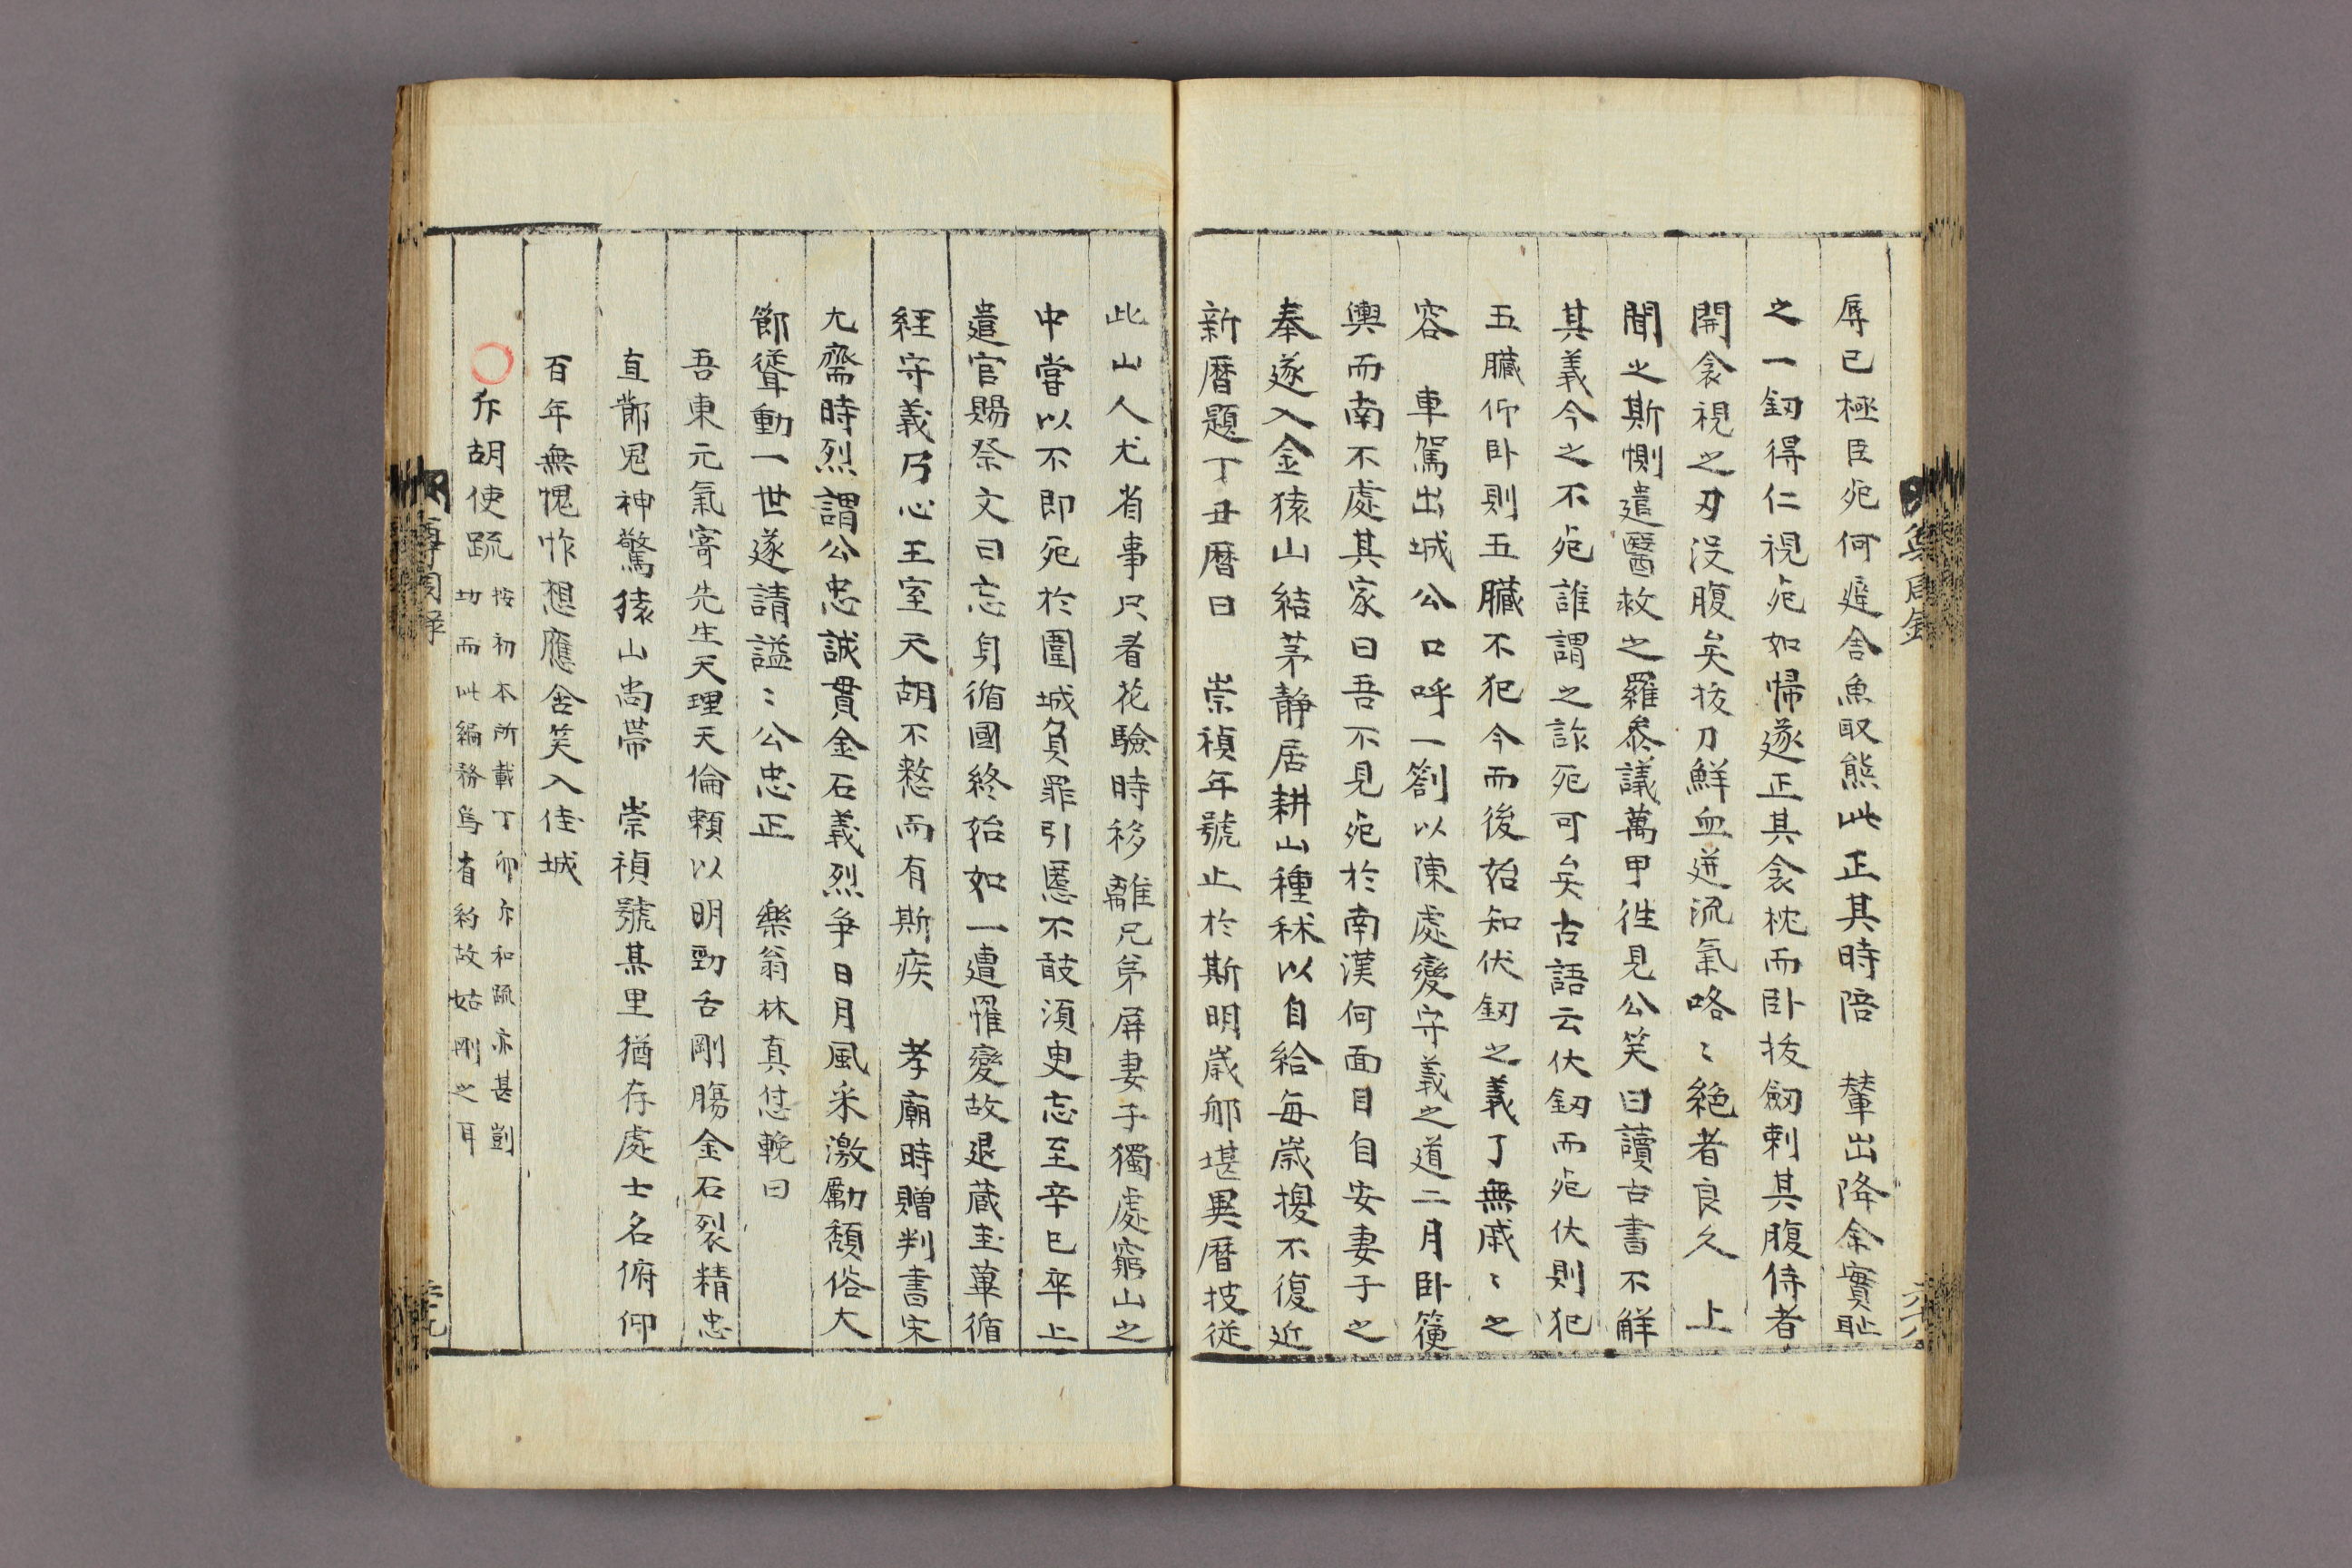 辱已極臣死何遲舍魚取熊此正其時陪　輦出降余實恥
之一釰得仁視死如歸遂正其衾枕而卧拔劒刺其腹侍者
開衾視之刃没腹矣拔刀鮮血迸流氣咯〻絶者良久　上
聞之斯惻遣醫救之羅叅議萬甲徃見公笑曰讀古書不觧
其義今之不死誰謂之詐死可矣古語云伏釰而死伏則犯
五臟仰卧則五臟不犯今而後始知伏釰之義了無戚〻之
容　車駕出城公口呼一劄以陳處變守義之道二月卧䈕
輿而南不處其家曰吾不見死於南漢何面目自安妻子之
奉遂入金猿山結茅静居耕山種秫以自給每歳擾不復近
新曆題丁丑曆曰　崇禎年號止於斯明歳那堪異曆披従
此山人尤省事只看花驗時移離兄弟屏妻子獨處窮山之
中嘗以不即死於圍城負罪引慝不敢須臾忘至辛巳卒上
遣官賜祭文曰忘身循國終始如一遭罹變故退蔵圭蓽循
経守義乃心王室天胡不憗而有斯疾　孝廟時贈判書宋
尤齋時烈謂公忠誠貫金石義烈爭日月風采激勵頽俗大
節聳動一世遂請謚〻公忠正　樂翁林真怤輓曰
吾東元氣寄先生天理天倫頼以明勁舌剛膓金石裂精忠
直節鬼神驚猿山尚帯　崇禎號某里猶存處士名俯仰
百年無愧怍想應含笑入佳城
○斥胡使疏　按初本所載丁卯斥和疏亦甚剴
切而此編務為省約故姑刪之耳